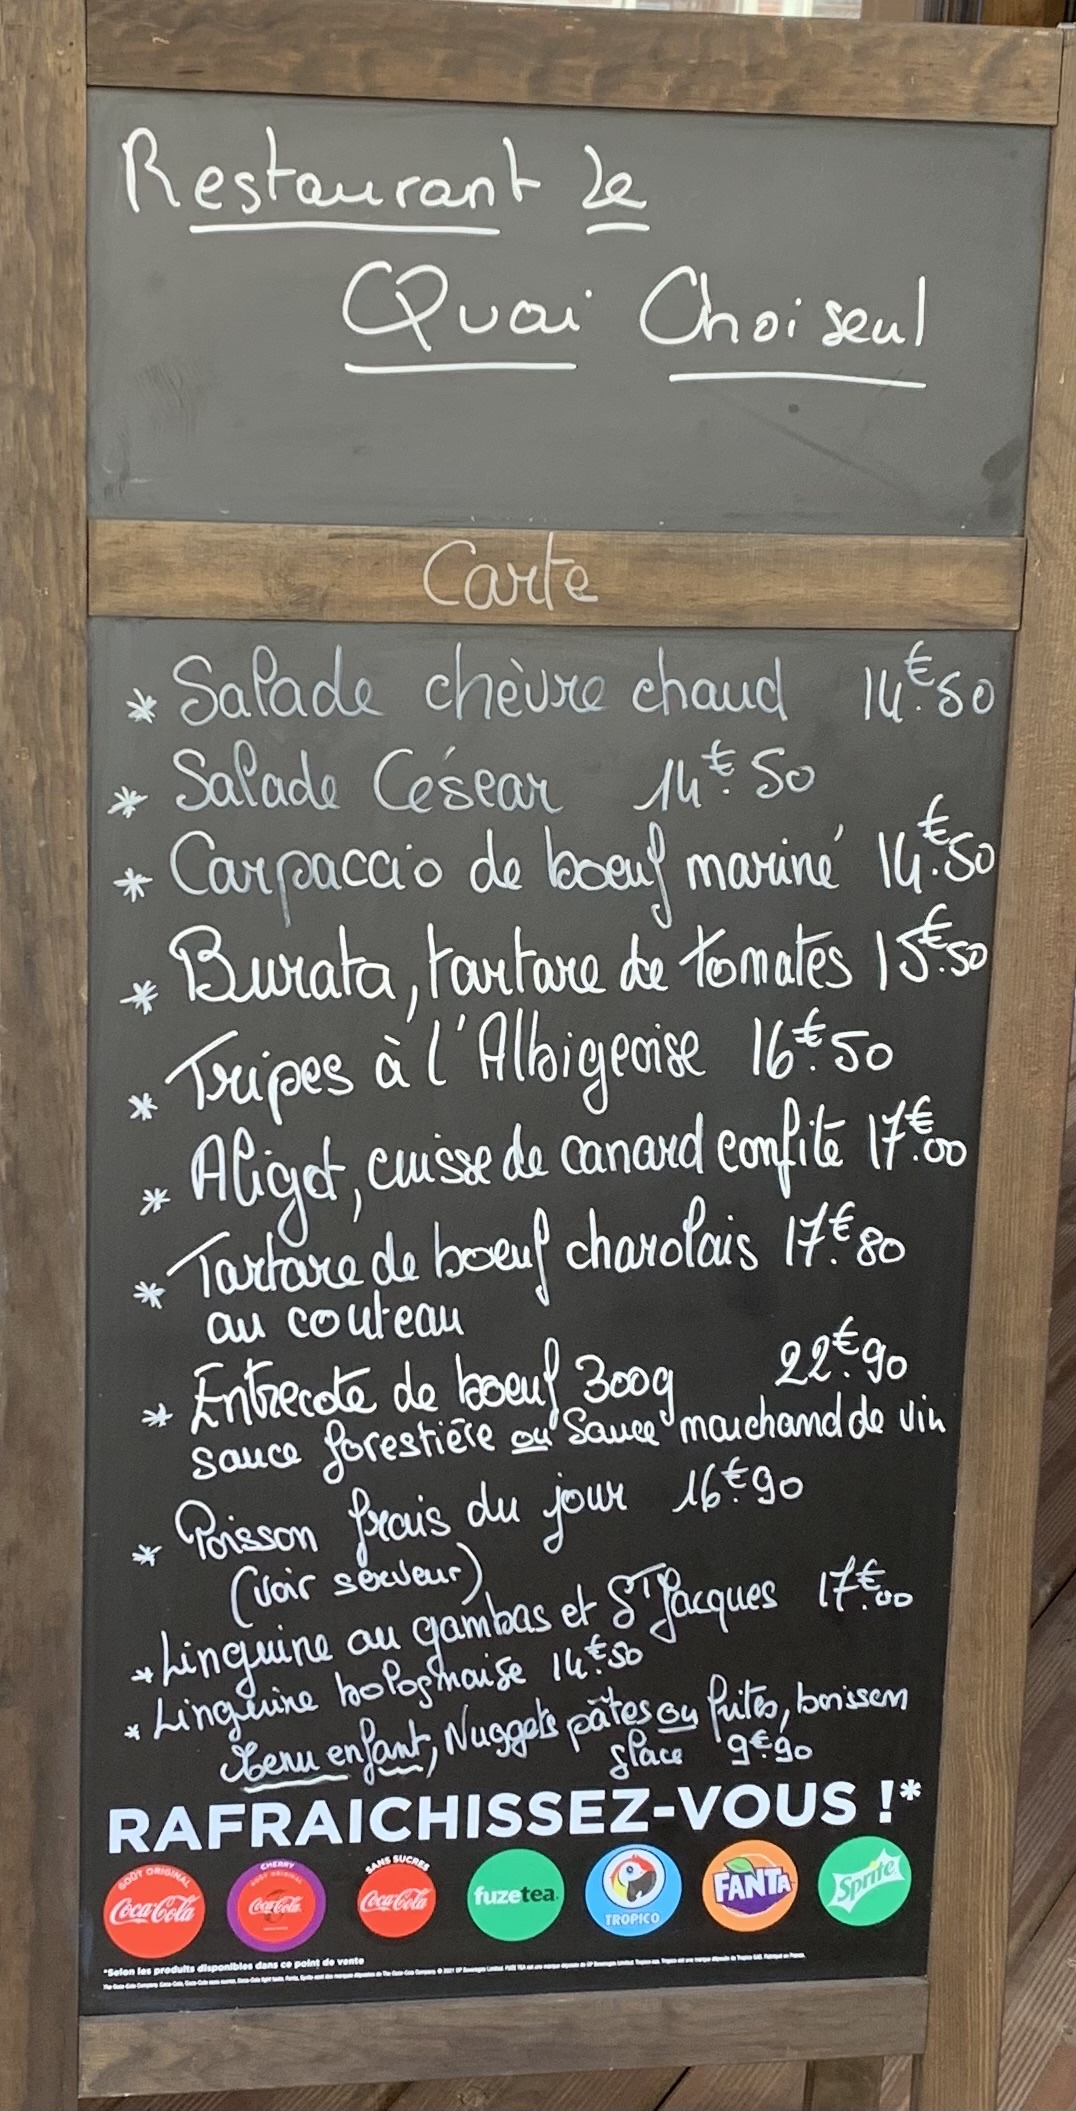 Restaurant Le
Quai Choiseul
Carte
* Salade chèvre chaud 14€.50
* Salade Césear 14€.50
* Carpaccio de boeuf mariné 14€.50
* Burata, tartare de tomates 15€.50
* Tripes à l'Albigeoise 16€.50
* Aligot, cuisse de canard confite 17€.00
* Tartare de boeuf charolais 17€.80
au couteau
* Entrecote de boeuf 300g 22€.90
sauce forestière ou sauce marchand de vin
* Poisson frais du jour 16€.90
(voir serveur)
* Linguine au gambas et St Jacques 17€.00
* Linguine bolognaise 14€.50
Menu enfant, Nuggets pâtes ou frites, boisson
glace 9€.90
RAFRAICHISSEZ-VOUS !*
GOÛT ORIGINAL
Coca-Cola
CHERRY
GOÛT ORIGINAL
Coca-Cola
SANS SUCRES
Coca-Cola
fuzetea
TROPICO
FANTA
Sprite
*Selon les produits disponibles dans ce point de vente